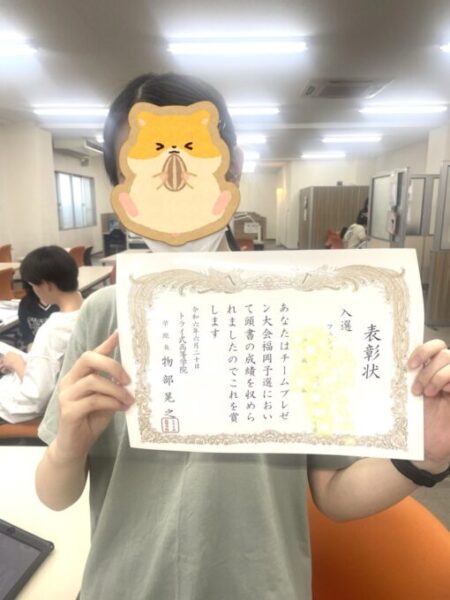 表彰状
入選
あなたはチームプレゼ
ン大会福岡予選におい
て頭書の成績を収めら
れましたのでこれを賞
します
令和六年六月二十日
トライ式高等学院
学院長 物部晃之